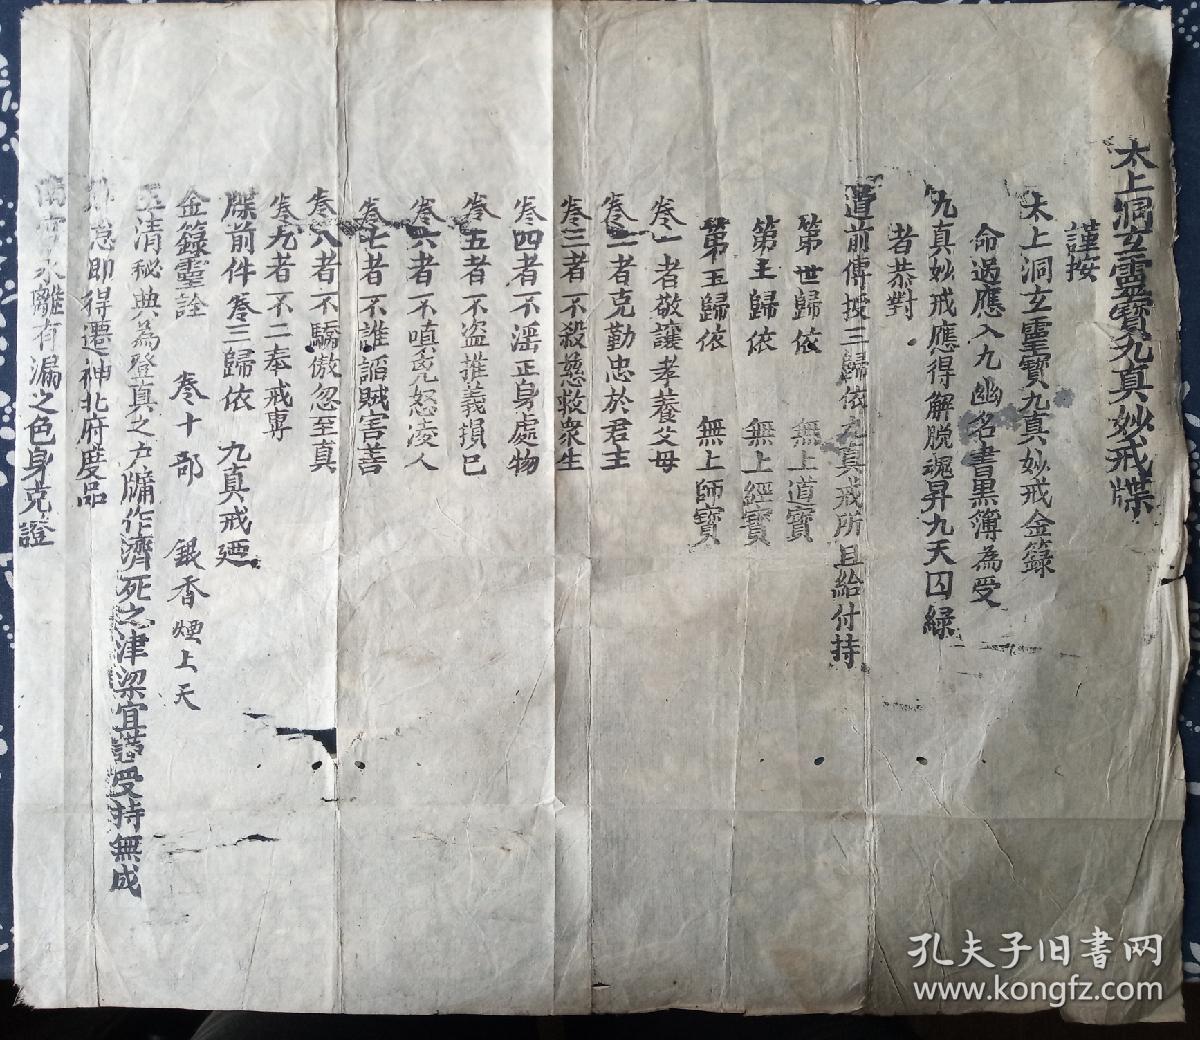 太上洞玄靈寳九真妙戒牒
謹按
太上洞玄靈寳九真妙戒金籙
命過應入九幽名書黒簿為受
九真妙戒應得解脱魂昇九天囚緑
者恭對
道前傳授三歸依九真戒所且給付持
第世歸依 無上道寳
第主歸依 無上經寳
第玉歸依 無上師寳
一者敬讓孝養父母
二者克勤忠於君主
三者不殺慈救衆生
四者不滛正身處物
五者不盗推義損己
六者不嗔怒凌人
七者不詐謟賊害善
八者不驕傲忽至真
九者不二奉戒專
牒前件 三歸依 九真戒廼
金籙靈詮 十部 銀香煙上天
玉清秘典為登真之户牖作濟死之津梁宜謹受持無成
怠即得遷神北府度品
南宫永離有漏之色身克證
孔夫子旧书网
www.kongfz.com